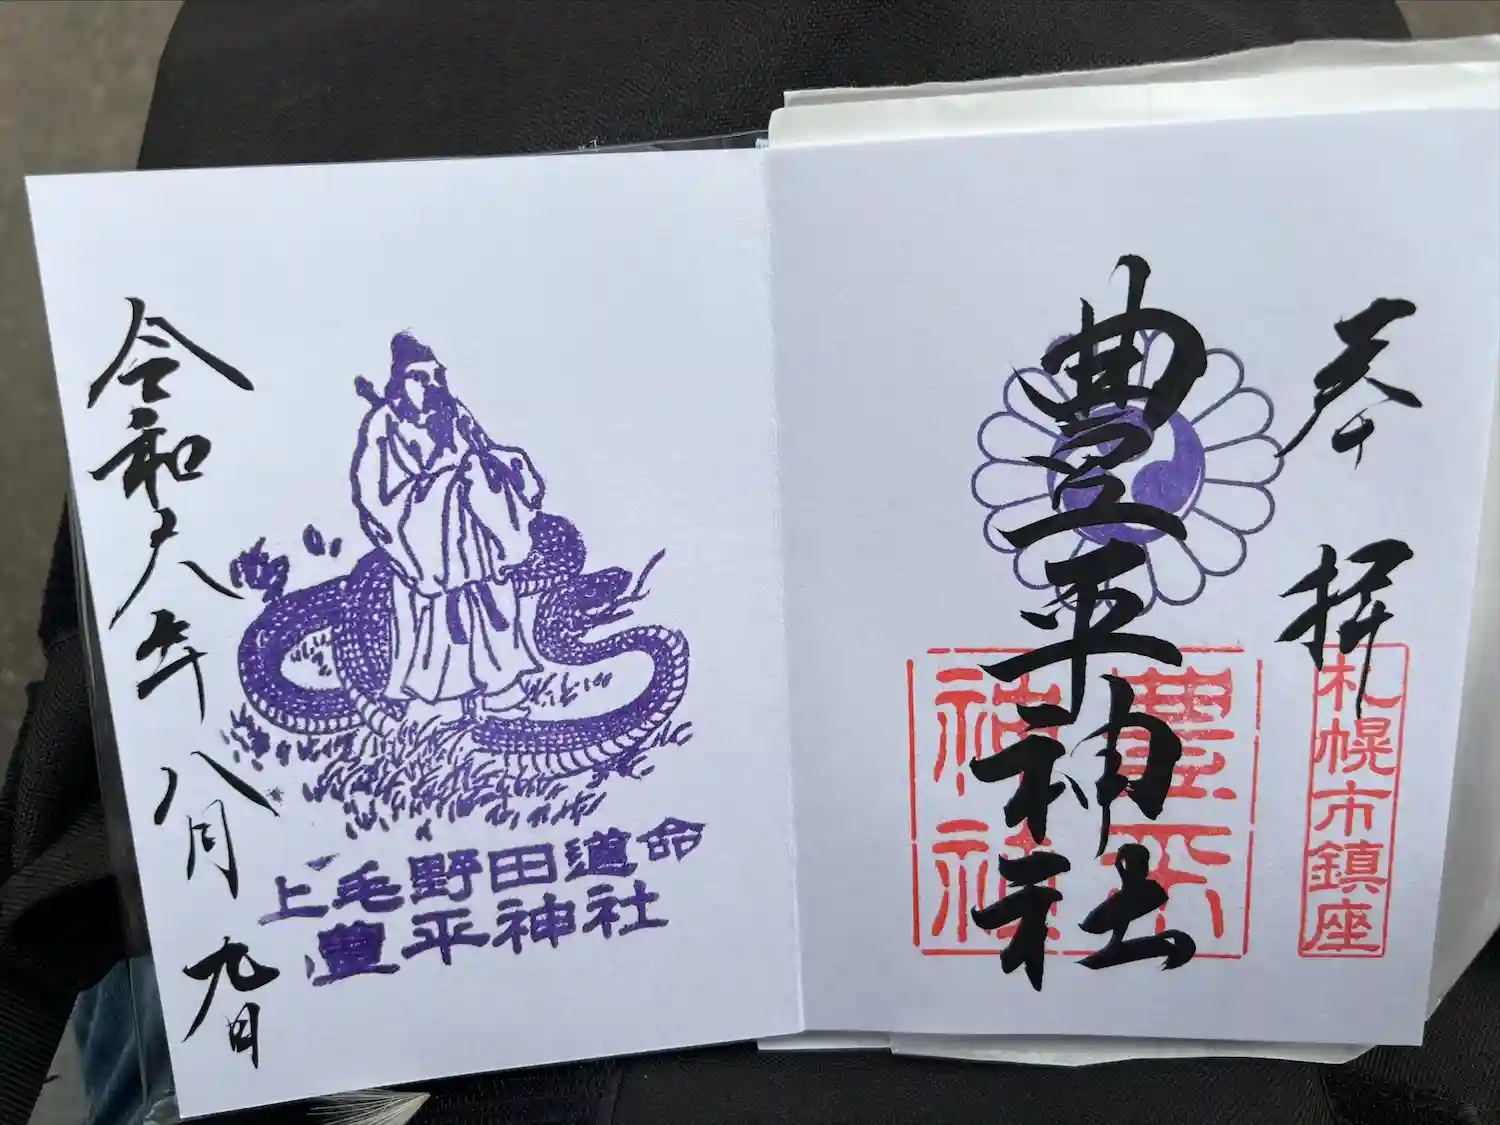 奉拝
札幌市鎮座
豊平神社
豊平神社
上毛野田道命
豊平神社
令和六年八月九日